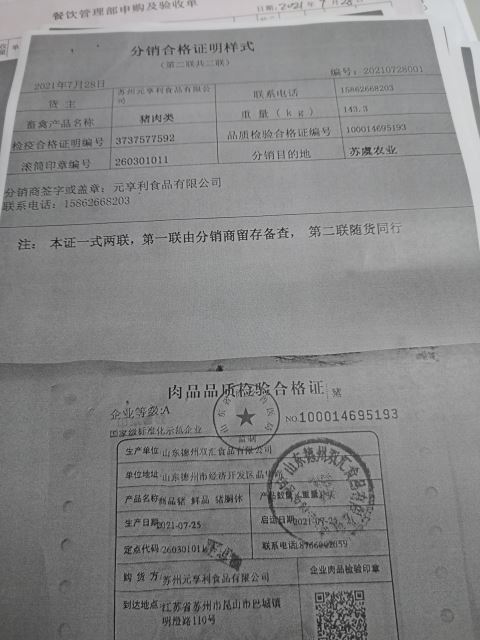 餐饮管理部申购及验收单
日期:2021年7月28日
分销合格证明样式
(第二联共二联)
编号:20210728001
2021年7月28日
货主 苏州元亨利食品有限公司 联系电话 15862668203
畜禽产品名称 猪肉类 重量(kg) 143.3
检疫合格证明编号 3737577592 品质检验合格证编号 100014695193
滚筒印章编号 260301011 分销目的地 苏虞农业
分销商签字或盖章:元享利食品有限公司
联系电话:15862668203
注: 本证一式两联,第一联由分销商留存备查, 第二联随货同行
肉品品质检验合格证 猪
企业等级:A
NO.100014695193
国家级标准化示范企业
监制
生产单位 山东德州双汇食品有限公司
单位地址 山东德州市经济开发区晶华
产品名称 商品猪 鲜品 猪胴体 产品数量、重量
生产日期 2021-07-25 启运日期 2021-07-2
定点代码 26030101 联系电话
购货方 苏州元亨利食品有限公司 企业肉品检验印章
到达地点 江苏省苏州市昆山市巴城镇
明澄路110号